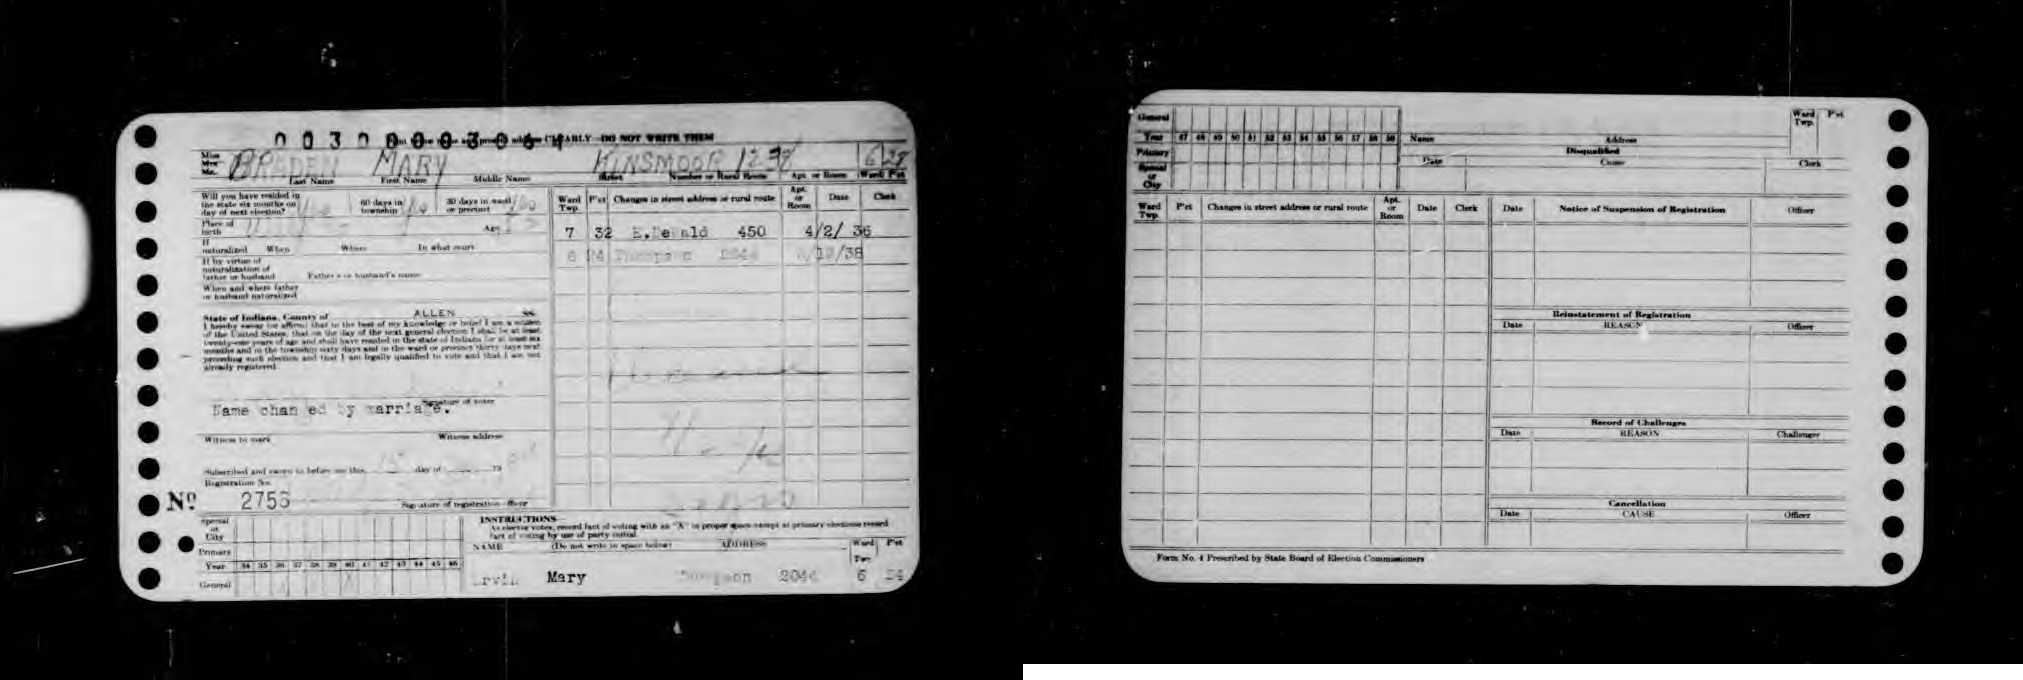 CLEARLY—DO NOT WRITE THEM
Miss
Mrs.
Mr.
BRADEN MARY KINSMOOR 6 28
Last Name First Name Middle Name Street Number or Rural Route Apt. or Room Ward P'ct
Will you have resided in
the state six months on
day of next election?
60 days in
township
30 days in ward
or precinct
Place of
birth
Age
If
naturalized When Where In what court
If by virtue of
naturalization of
father or husband Father's or husband's name
When and where father
or husband naturalized
State of Indiana, County of ALLEN ss:
I hereby swear (or affirm) that to the best of my knowledge or belief I am a citizen
of the United States, that on the day of the next general election I shall be at least
twenty-one years of age and shall have resided in the state of Indiana for at least six
months and in the township sixty days and in the ward or precinct thirty days next
preceding such election and that I am legally qualified to vote and that I am not
already registered.
Signature of voter
Name changed by marriage.
Witness to mark Witness address
Subscribed and sworn to before me this day of 19
Registration No.
Nº 2756
Signature of registration officer
Ward Twp. P'ct Changes in street address or rural route Apt. or Room Date Clerk
7 32 E.Dewald 450 4/2/ 36
6 24 Thompson 2044
Special
or
City
Primary
Year 34 35 36 37 38 39 40 41 42 43 44 45 46
General
INSTRUCTIONS—
As elector votes, record fact of voting with an "X" in proper space except at primary elections record
fact of voting by use of party initial.
NAME (Do not write in space below) ADDRESS Ward Twp. P'ct
Irvin Mary Thompson 2044 6 24
General
Year 47 48 49 50 51 52 53 54 55 56 57 58 59
Primary
Special
or
City
Name Address
Ward
Twp.
P'ct
Disqualified
Date Cause Clerk
Ward Twp. P'ct Changes in street address or rural route Apt. or Room Date Clerk
Date Notice of Suspension of Registration Officer
Reinstatement of Registration
Date REASON Officer
Record of Challenges
Date REASON Challenger
Cancellation
Date CAUSE Officer
Form No. 4 Prescribed by State Board of Election Commissioners